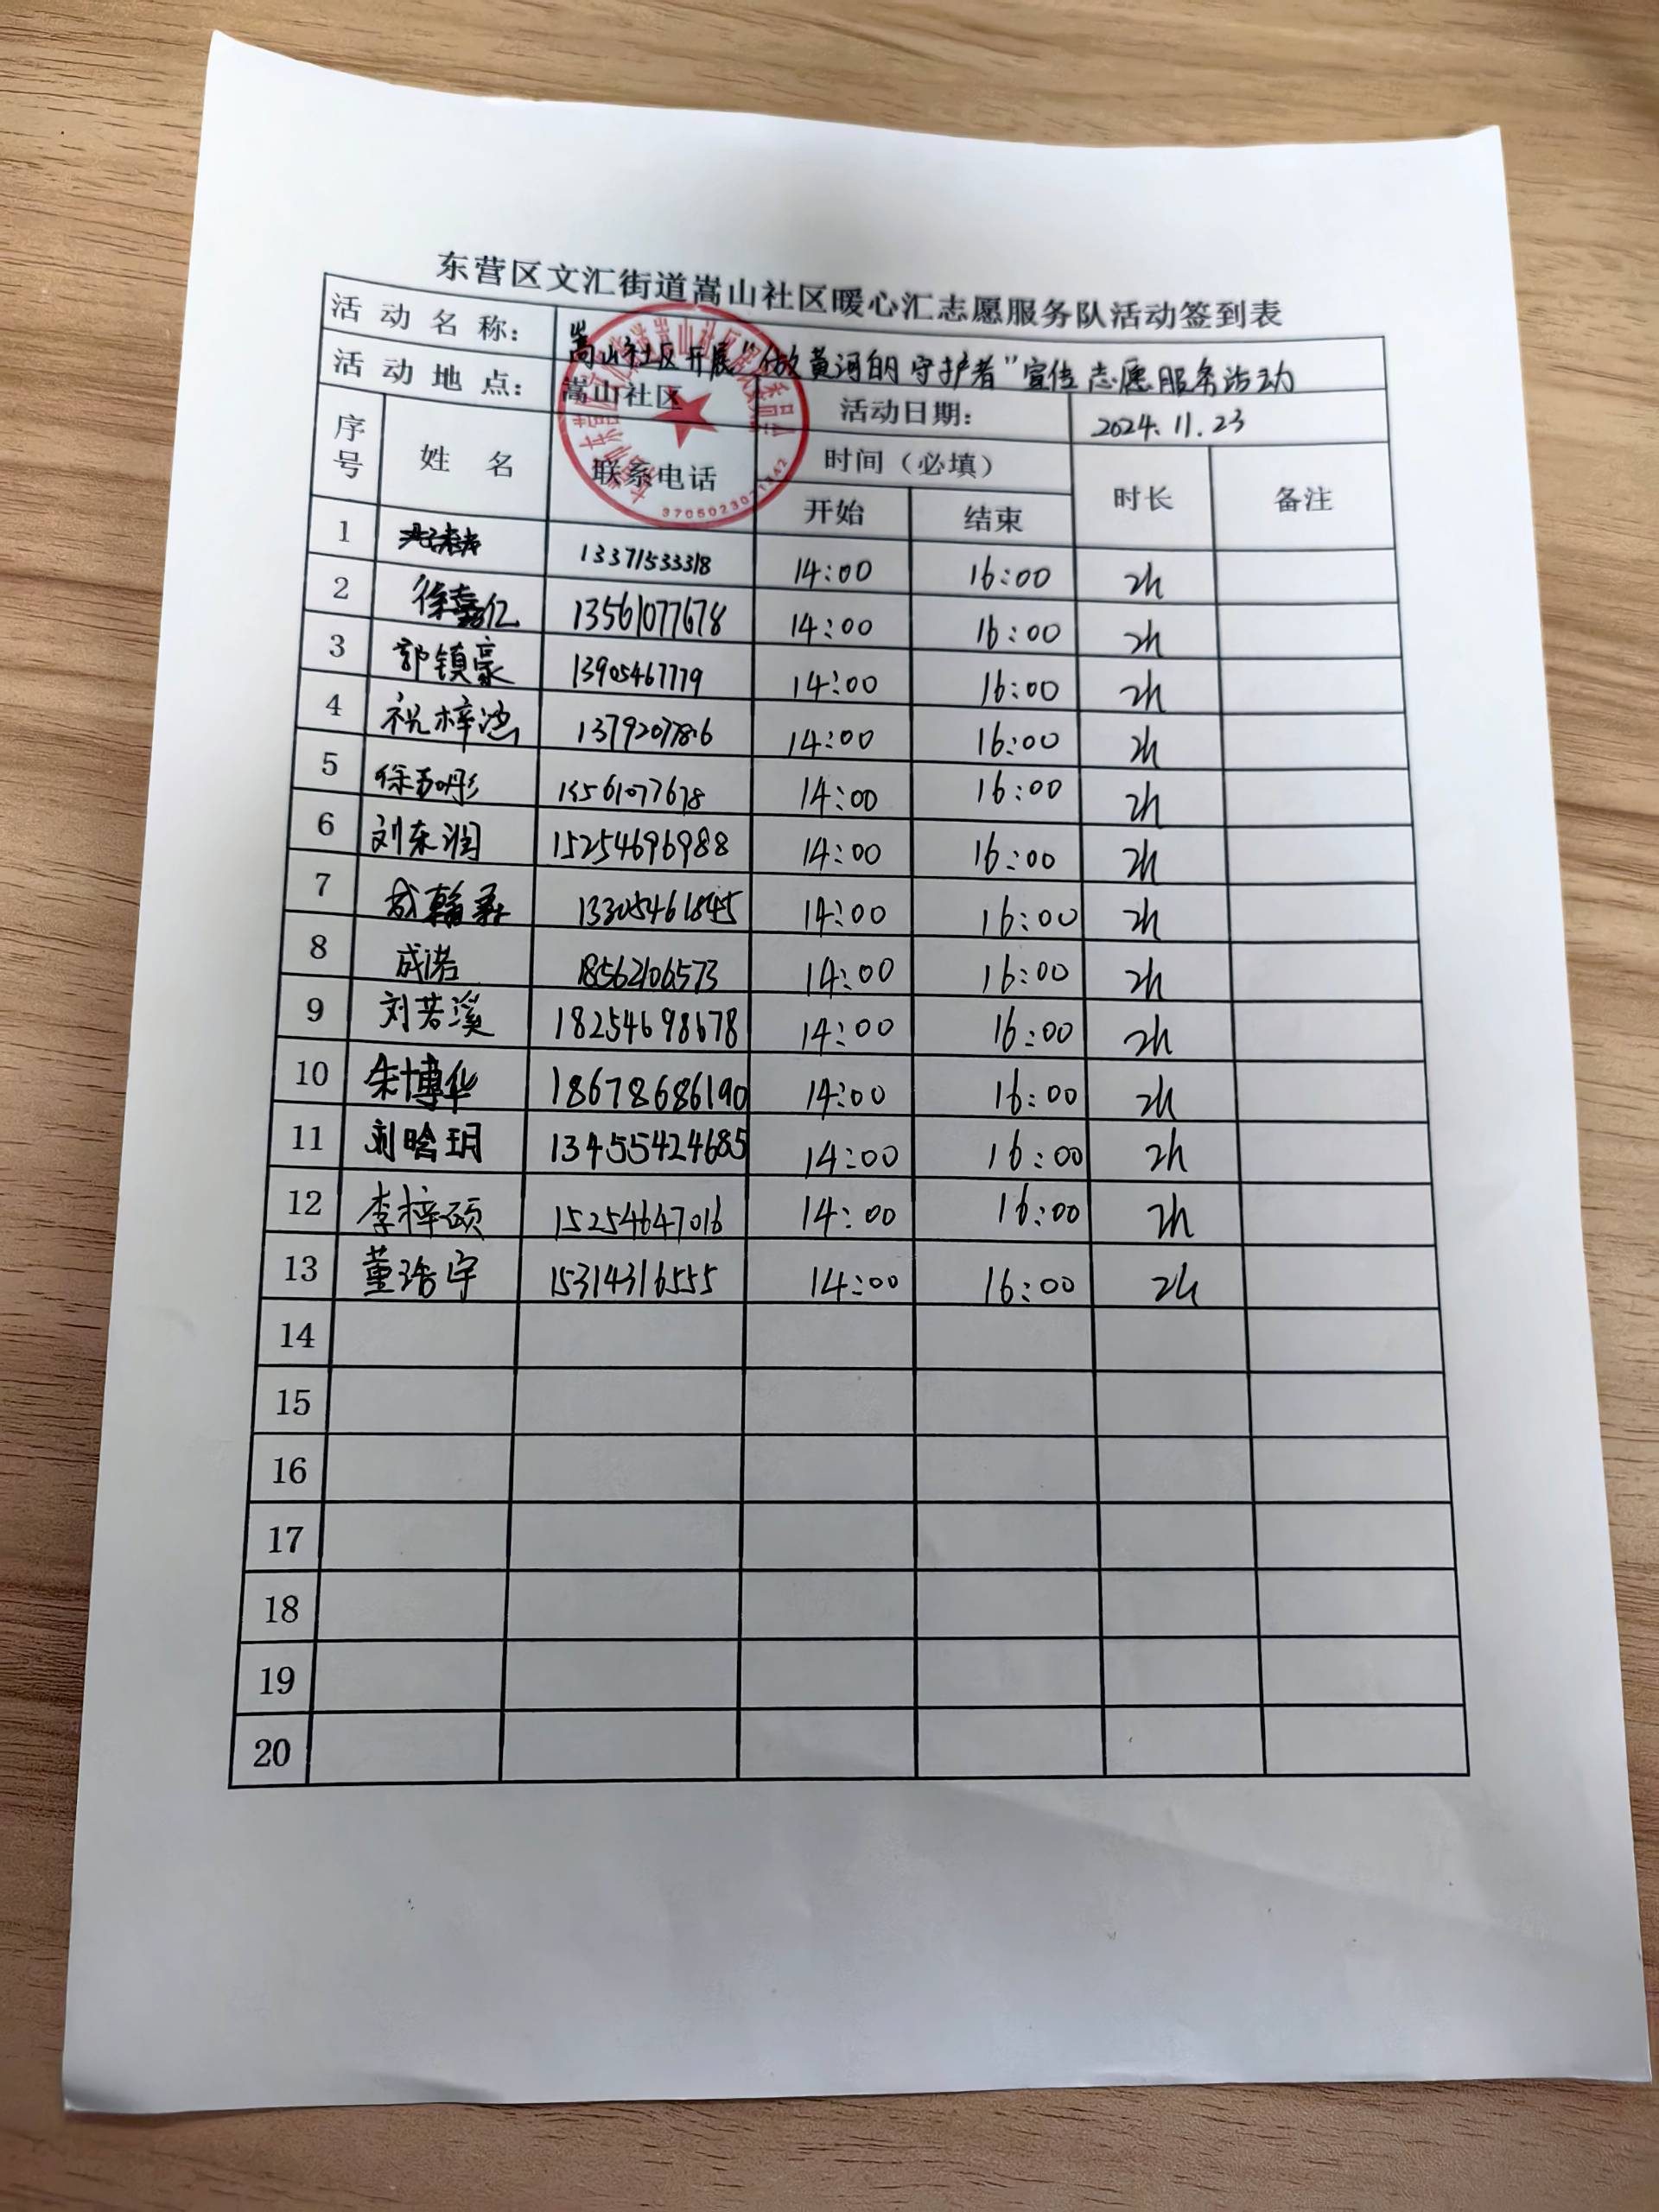 东营区文汇街道嵩山社区暖心汇志愿服务队活动签到表
活动名称： 嵩山社区开展“做黄河的守护者”宣传志愿服务活动
活动地点： 嵩山社区 活动日期： 2024.11.23
序号 姓名 联系电话 时间（必填） 时长 备注
开始 结束
3705023071342
1 13371533318 14:00 16:00 2h
2 徐嘉亿 13561077678 14:00 16:00 2h
3 郭镇豪 13905467779 14:00 16:00 2h
4 祝梓鸿 14:00 16:00 2h
5 13561077678 14:00 16:00 2h
6 刘东润 15254696988 14:00 16:00 2h
7 13305461845 14:00 16:00 2h
8 成诺 18562106573 14:00 16:00 2h
9 刘若溪 18254698678 14:00 16:00 2h
10 朱博华 18678686190 14:00 16:00 2h
11 刘晗玥 13455424685 14:00 16:00 2h
12 李梓硕 15254647016 14:00 16:00 2h
13 董浩宇 15314316555 14:00 16:00 2h
14
15
16
17
18
19
20